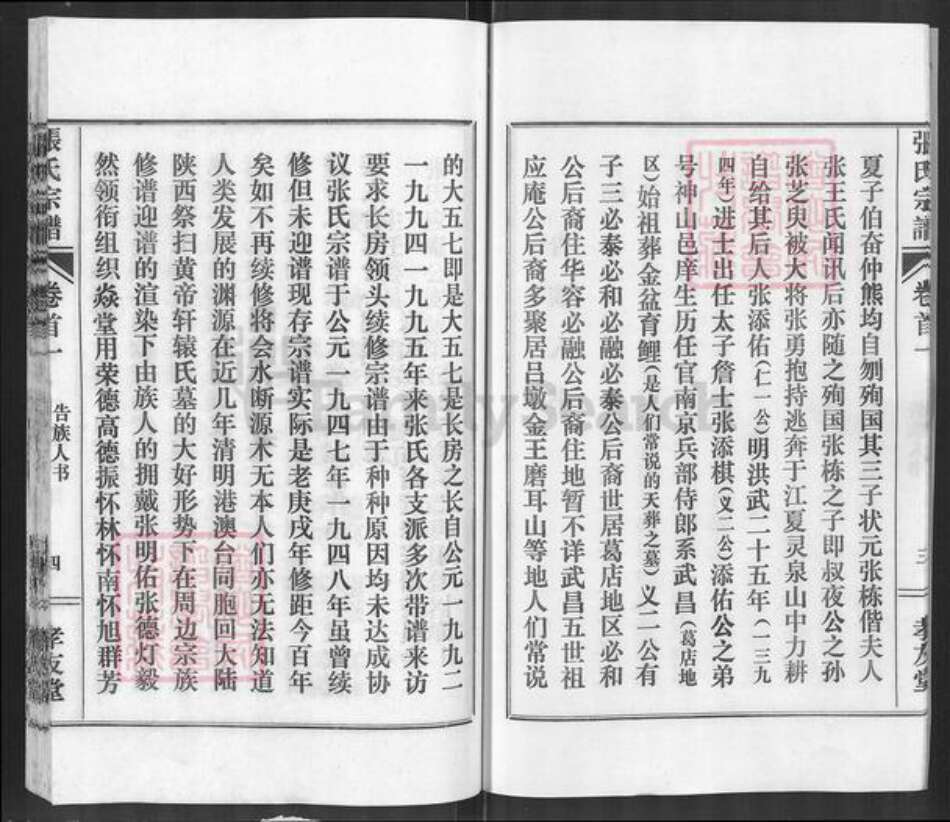 張氏宗譜
卷首一
三
孝友堂
夏子伯奋仲熊均自刎殉国其三子状元张栋偕夫人
张王氏闻讯后亦随之殉国张栋之子即叔夜公之孙
张芝臾被大将张勇抱持逃奔于江夏灵泉山中力耕
自给其后人张添佑(仁一公)明洪武二十五年(一三九
四年)进士出任太子詹士张添棋(义二公)添佑公之弟
号神山邑庠生历任官南京兵部侍郎系武昌(葛店地
区)始祖葬金盆育鲤(是人们常说的天葬之墓)义二公有
子三必泰必和必融必泰公后裔世居葛店地区必和
公后裔住华容必融公后裔住地暂不详武昌五世祖
应庵公后裔多聚居吕墩金王磨耳山等地人们常说
的大五七即是大五七是长房之长自公元一九九二
一九九四一九九五年来张氏各支派多次带谱来访
要求长房领头续修宗谱由于种种原因均未达成协
议张氏宗谱于公元一九四七年一九四八年虽曾续
修但未迎谱现存宗谱实际是老庚戌年修距今百年
矣如不再续修将会水断源木无本人们亦无法知道
人类发展的渊源在近几年清明港澳台同胞回大陆
陕西祭扫黄帝轩辕氏墓的大好形势下在周边宗族
修谱迎谱的渲染下由族人的拥戴张明佑张德灯毅
然领衔组织焱堂用荣德高德振怀林怀南怀旭群芳
張氏宗譜
卷首一
告族人书
四
孝友堂
FamilySearch